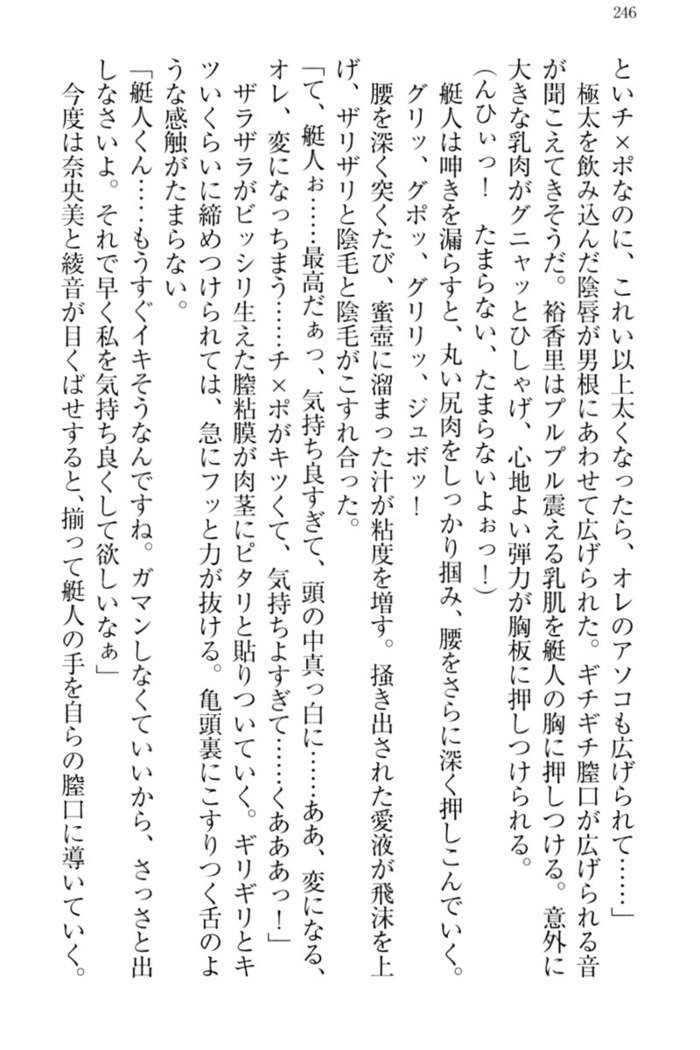 246
といチ×ポなのに、これい以上太くなったら、オレのアソコも広げられて……」
極太を飲み込んだ陰唇が男根にあわせて広げられた。ギチギチ膣口が広げられる音
が聞こえてきそうだ。裕香里はプルプル震える乳肌を艇人の胸に押しつける。意外に
大きな乳肉がグニャッとひしゃげ、心地よい弾力が胸板に押しつけられる。
(んひぃっ! たまらない、たまらないよぉっ!)
艇人は呻きを漏らすと、丸い尻肉をしっかり掴み、腰をさらに深く押しこんでいく。
グリッ、グポッ、グリリッ、ジュボッ!
腰を深く突くたび、蜜壺に溜まった汁が粘度を増す。掻き出された愛液が飛沫を上
げ、ザリザリと陰毛と陰毛がこすれ合った。
「て、艇人ぉ……最高だぁっ、気持ち良すぎて、頭の中真っ白に……ああ、変になる、
オレ、変になっちまう……チ×ポがキツくて、気持ちよすぎて……くあああっ!」
ザラザラがビッシリ生えた膣粘膜が肉茎にピタリと貼りついていく。ギリギリとキ
ツいくらいに締めつけられては、急にフッと力が抜ける。亀頭裏にこすりつく舌のよ
うな感触がたまらない。
「艇人くん……もうすぐイキそうなんですね。ガマンしなくていいから、さっさと出
しなさいよ。それで早く私を気持ち良くして欲しいなぁ」
今度は奈央美と綾音が目くばせすると、揃って艇人の手を自らの膣口に導いていく。